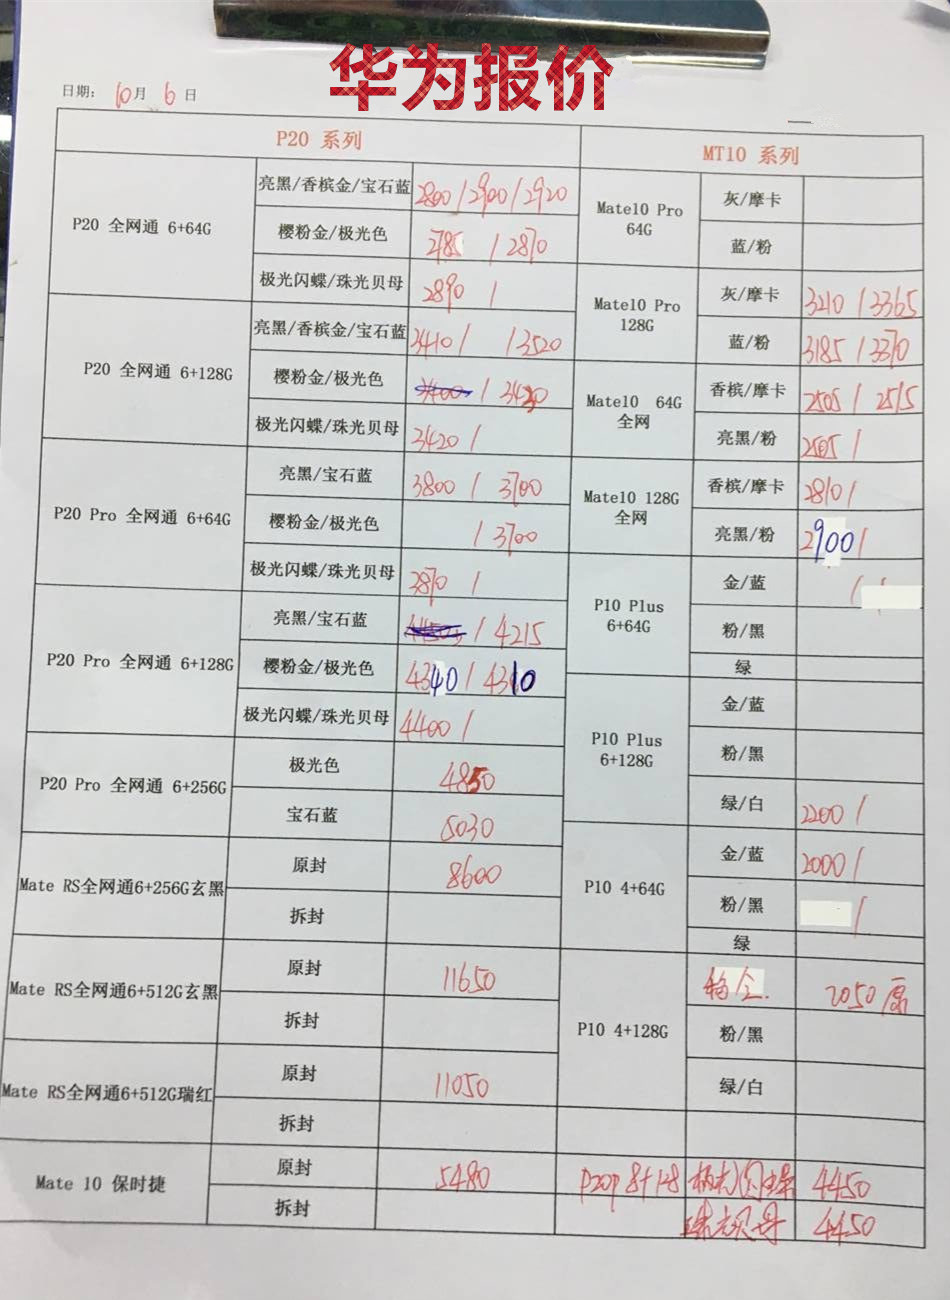 华为报价
日期： 10月 6 日
P20 系列
P20 全网通 6+64G
亮黑/香槟金/宝石蓝 2800/2900/2920
樱粉金/极光色 2785 / 2870
极光闪蝶/珠光贝母 2890 /
P20 全网通 6+128G
亮黑/香槟金/宝石蓝 3410/ /3520
樱粉金/极光色 / 3420
极光闪蝶/珠光贝母 3420 /
P20 Pro 全网通 6+64G
亮黑/宝石蓝 3800 / 3700
樱粉金/极光色 / 3700
极光闪蝶/珠光贝母 3870 /
P20 Pro 全网通 6+128G
亮黑/宝石蓝 / 4215
樱粉金/极光色 4340 / 4310
极光闪蝶/珠光贝母 4400 /
P20 Pro 全网通 6+256G
极光色 4850
宝石蓝 5030
Mate RS全网通6+256G玄黑
原封 8600
拆封
Mate RS全网通6+512G玄黑
原封 11650
拆封
Mate RS全网通6+512G瑞红
原封 11050
拆封
Mate 10 保时捷
原封 5480
拆封
MT10 系列
Mate10 Pro
64G
灰/摩卡
蓝/粉
Mate10 Pro
128G
灰/摩卡 3210 / 3365
蓝/粉 3185 / 3370
Mate10 64G
全网
香槟/摩卡 2505 / 2515
亮黑/粉 2505 /
Mate10 128G
全网
香槟/摩卡 2810 /
亮黑/粉 2900 /
P10 Plus
6+64G
金/蓝 /
粉/黑
绿
P10 Plus
6+128G
金/蓝
粉/黑
绿/白 2200 /
P10 4+64G
金/蓝 2000 /
粉/黑 /
绿
P10 4+128G
2050
粉/黑
绿/白
P20P 8+128 4450
珠光贝母 4450